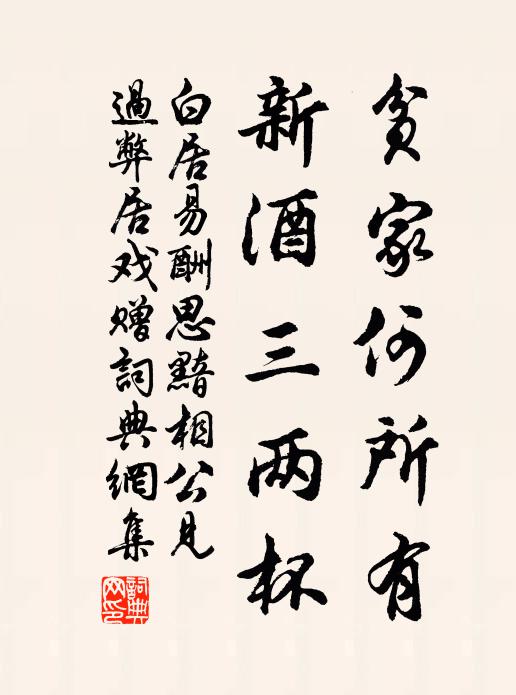 貧家何所有
新酒三两杯
白居易酬思黯相公見
過弊居戏贈詞典網集
詞典
网印